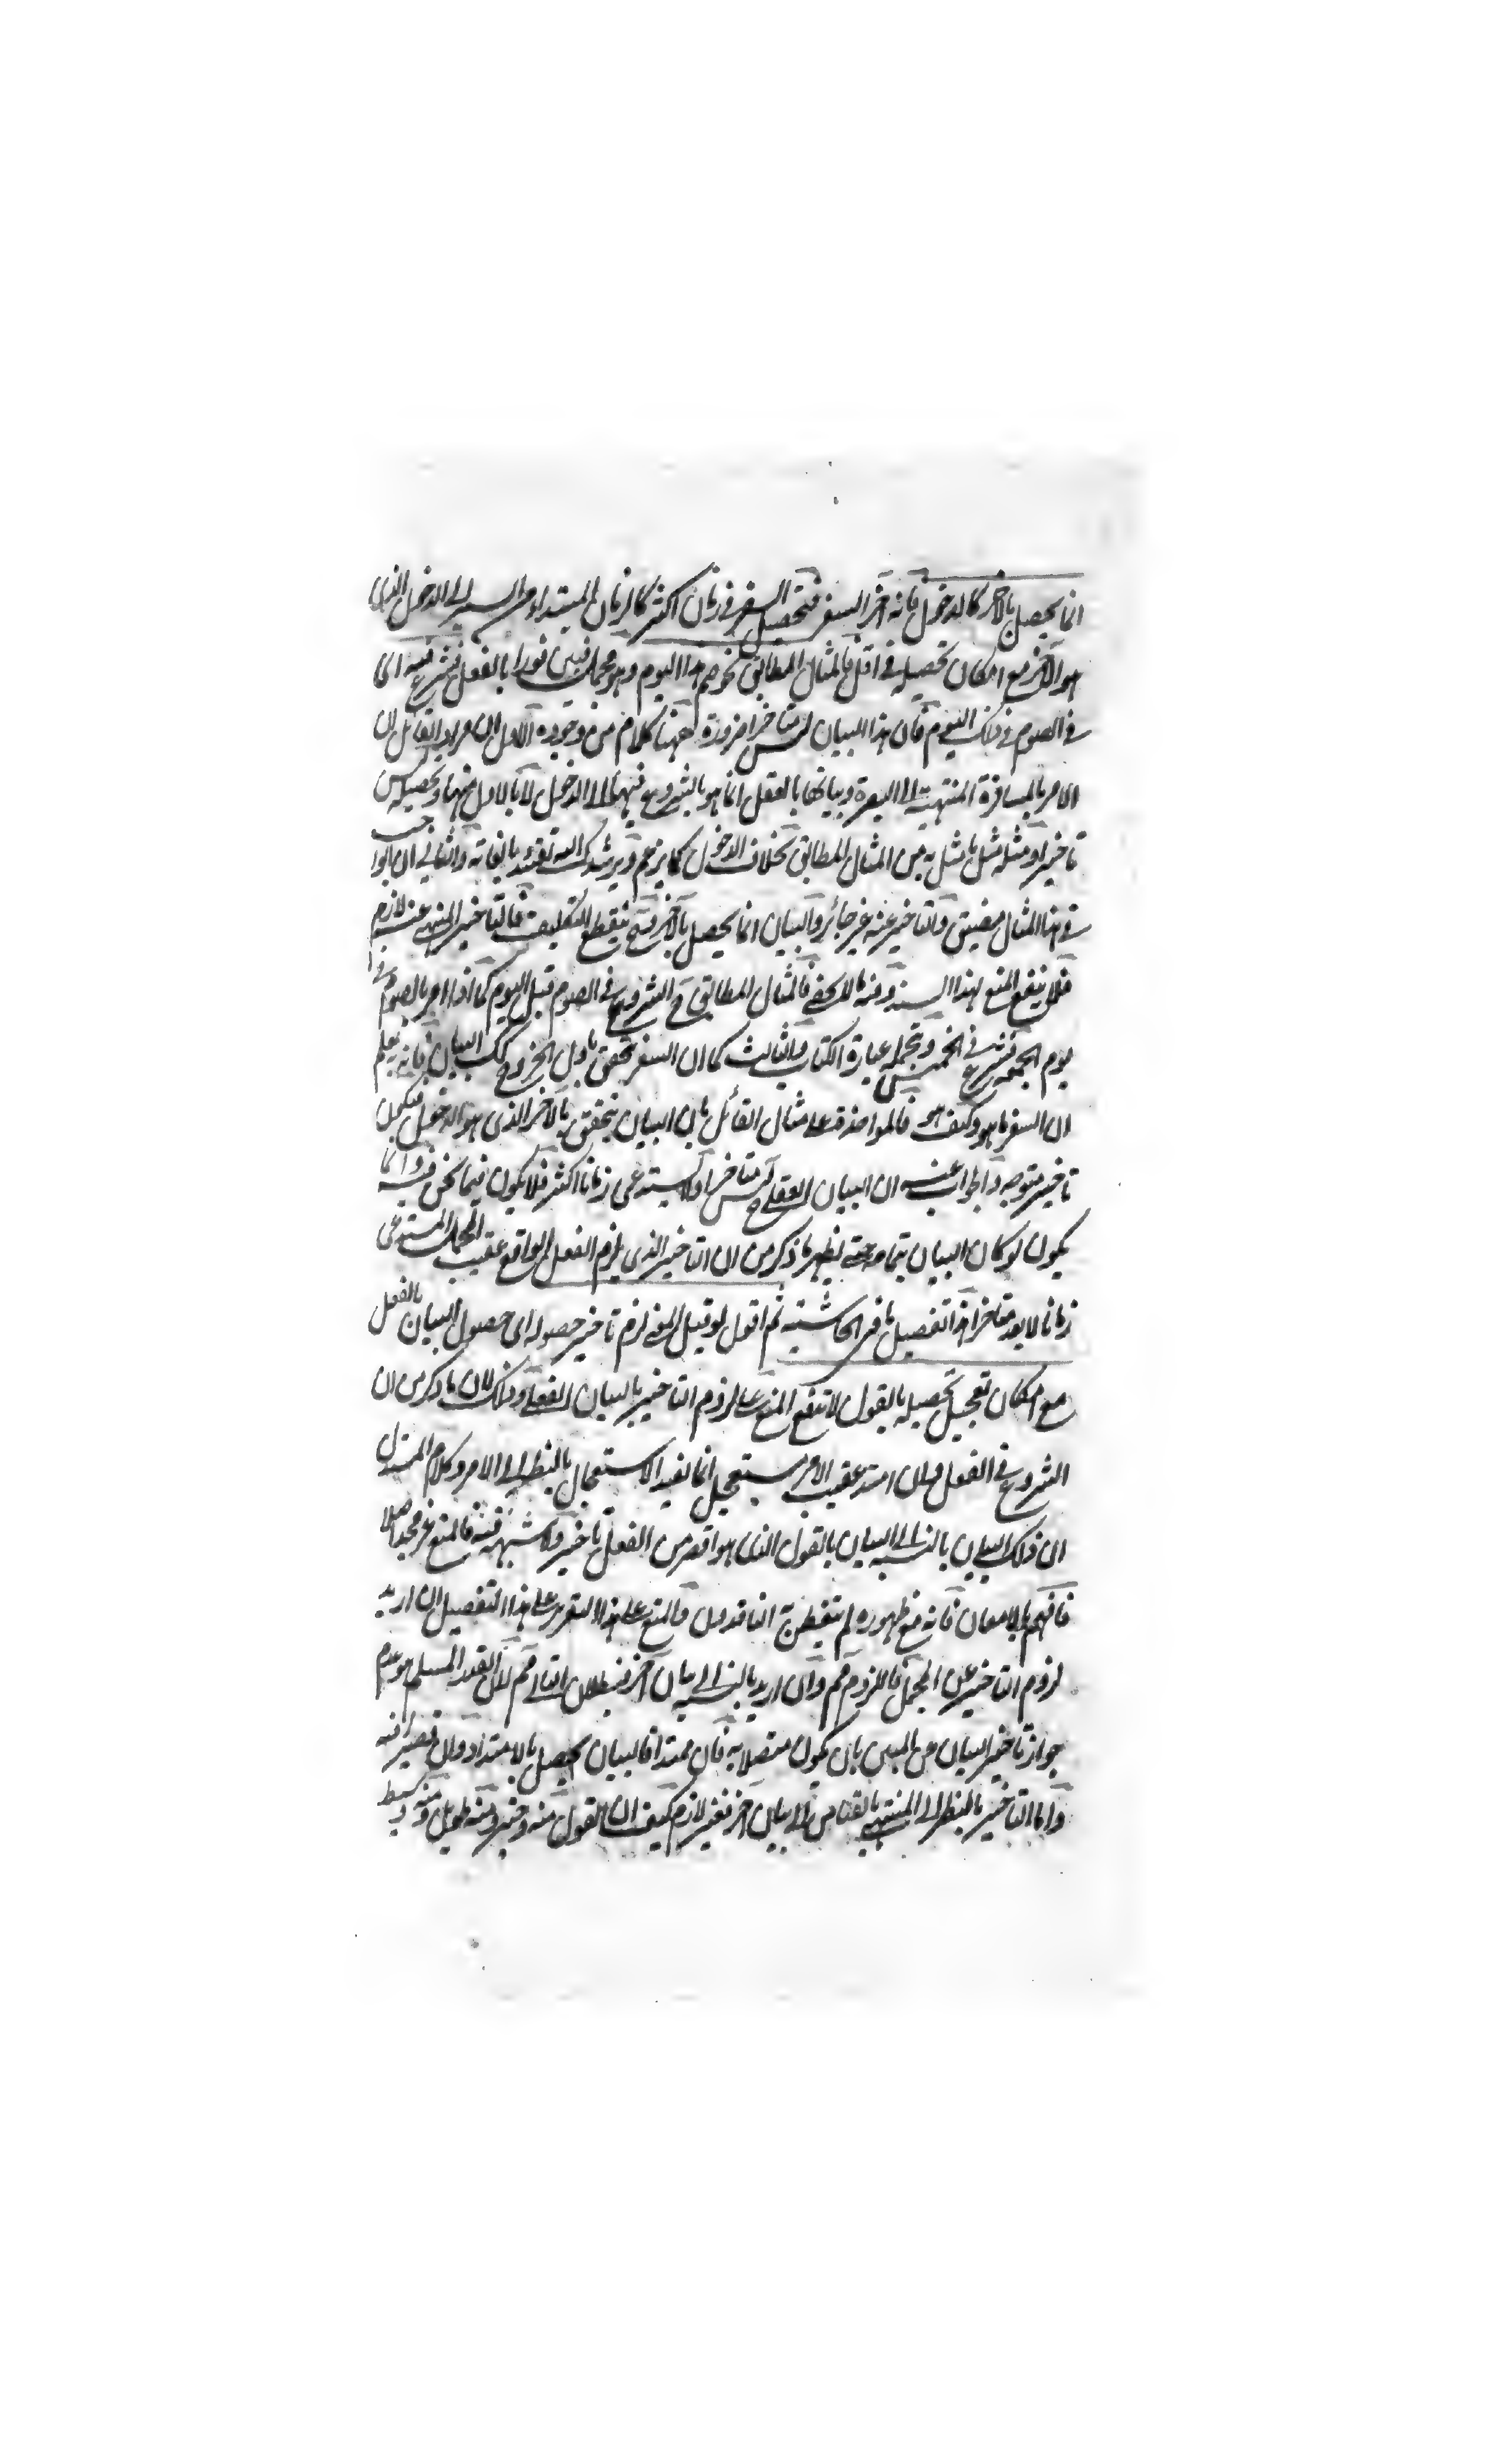 انما يحصل بالآخر كالدخول فانه آخر السفر فتحصيل السفر في زمان اكثر كالزمان المبتداء من السير الى الدخول الذى
هو الآخر مع امكان تحصيله في اقل فالمثال المطابق نحو صم هذا اليوم وهو مجمل فبين فورا بالفعل فشرع فيه اى
في الصوم في ذلك اليوم فان هذا البيان ليس متاخرا ضرورة ههنا كلام من وجوه الاول ان مراد القائل ان
الامر بالمسافرة المنتهية الى البصرة وبيانها بالفعل انما هو بالشروع فيها الى الدخول لا بالاول منها وتحصيله ليس
تاخيرا ومثله مثل ما مثل به من المثال المطابق بخلاف الدخول كما يزعم ويرشدك اليه تقييده بالغاية والثاني ان الواجب
في هذا المثال مضيق والتاخير عنه غير جائز والبيان انما يحصل بالآخر فح ينقطع التكليف فالتاخير المنهى عنه لازم
فلا ينفع المنع بهذا السند وفيه ما لا يخفى فالمثال المطابق ح الشروع في الصوم قبل اليوم كما اذا امر بالصوم في
يوم الجمعة فشرع في الخميس وتحمله عبارة الكتاب والثالث كما ان السفر تحقق باول الخروج كك البيان فانه يعلم
ان السفر ما هو وكيف هو فالمواخذة على مثال القائل بان البيان يتحقق بالآخر الذى هو الدخول فيكون
تاخير متوجه والجواب عنه ان البيان الفعلي ح ليس متاخرا ولا يستدعى زمانا اكثر فلا يكون فيما نحن فيه وانما
يكون لو كان البيان بتمامه حتى يظهر ما ذكر من ان التاخير الذى يلزم الفعل الواقع عقيب المجمل المستدعى
زمانا لا يعد متاخرا هذا تفصيل ما في الحاشية ثم اقول لو قيل المعنى لزم تاخير حصوله اى حصول البيان بالفعل
مع امكان تعجيل تحصيله بالقول لا تنفع المنع على لزوم التاخير بالبيان الفعلي وذلك لان ما ذكر من ان
الشروع في الفعل وان امتد عقيب الامر يستعجل انما يفيد الاستعجال بالنظر الى الامر وكلام المستدل
ان ذلك البيان بالنسبة الى البيان بالقول الذى هو اقصر من الفعل تاخير ولا شبهة فيه فالمنع غير مجد اصلا
فافهم بالامعان فانه مع ظهوره لم يتفطن به الناقدون والمنع على هذا التقرير على هذا التفصيل ان اريد
لزوم التاخير عن المجمل فاللزوم مم وان اريد بالنسبة الى بيان آخر فبطلان التالى مم لان القدر المسلم هو عدم
جواز تاخير البيان عن المبين بان يكون متصلا به فان ممتدا فالبيان يحصل بالامتداد وان قصيرا فبه
واما التاخير بالنظر الى المنتهى بالقياس الى بيان آخر فغير لازم كيف ان القول منه وجيز ومنه طويل ومنه وسيط